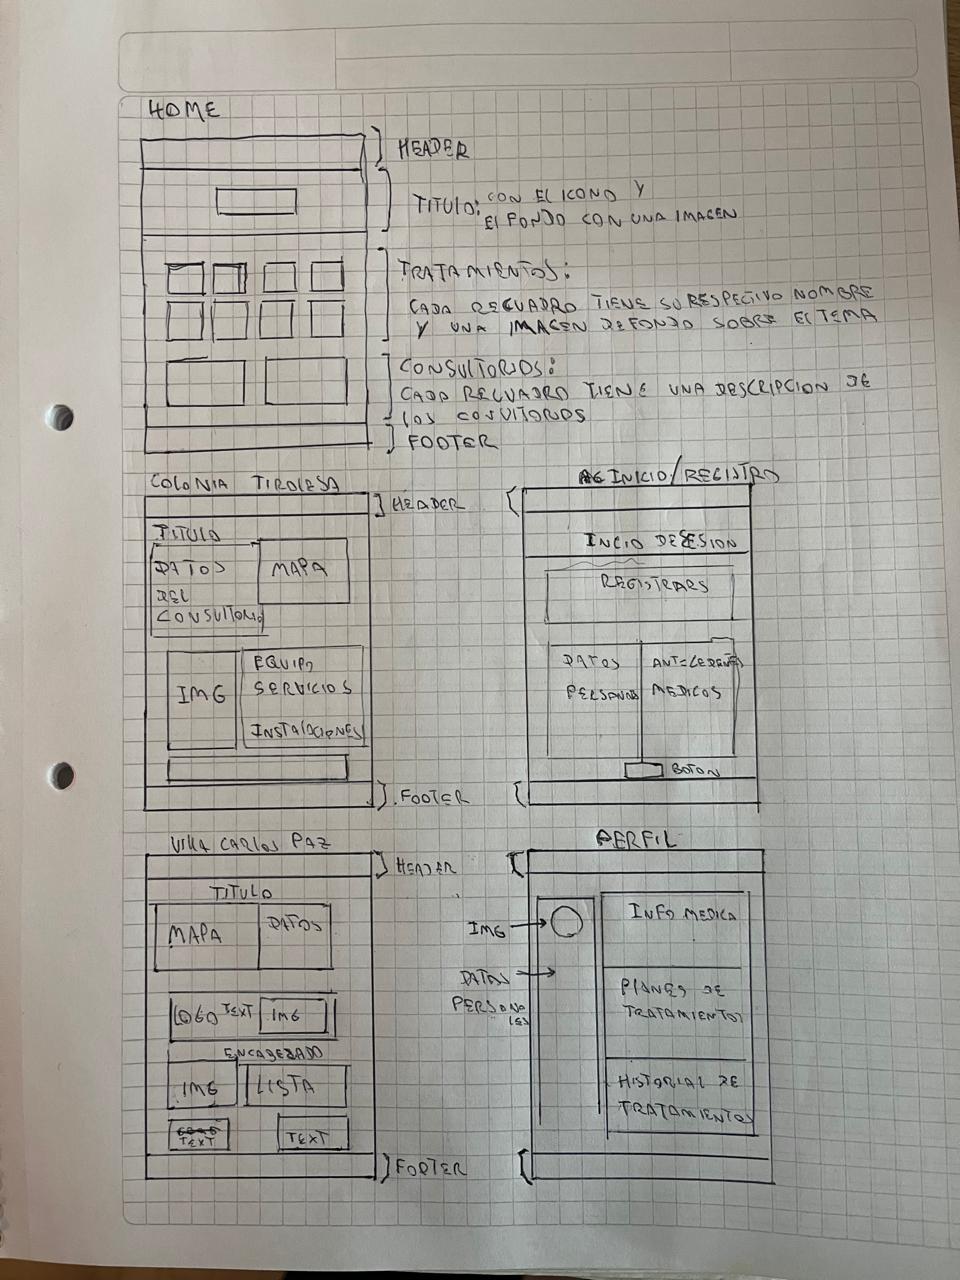 HOME
HEADER
TITULO: CON EL ICONO Y
El FONDO CON UNA IMAGEN
TRATAMIENTOS:
CADA RECUADRO TIENE SU RESPECTIVO NOMBRE
Y UNA IMAGEN DE FONDO SOBRE El TEMA
CONSULTORIOS:
CADA RECUADRO TIENE UNA DESCRIPCION DE
LOS CONSULTOROS
FOOTER
COLONIA TIROLESA
HEADER
TITULO
DATOS
DEL
CONSULTORIO
MAPA
IMG
EQUIPO
SERVICIOS
INSTALACIONES
FOOTER
INICIO/REGISTRO
INCIO DE SESION
REGISTRARS
DATOS
PERSONAS
ANTECEDENTES
MEDICOS
BOTON
VIllA CARLOS PAZ
HEADER
TITULO
MAPA
DATOS
LOGO TEXT
IMG
ENCABEZADO
IMG
LISTA
TEXT
TEXT
FOOTER
PERFIL
IMG
DATOS
PERSONA
LES
INFO MEDICA
PlANES DE
TRATAMIENTOS
HISTORIAL DE
TRATAMIENTOS